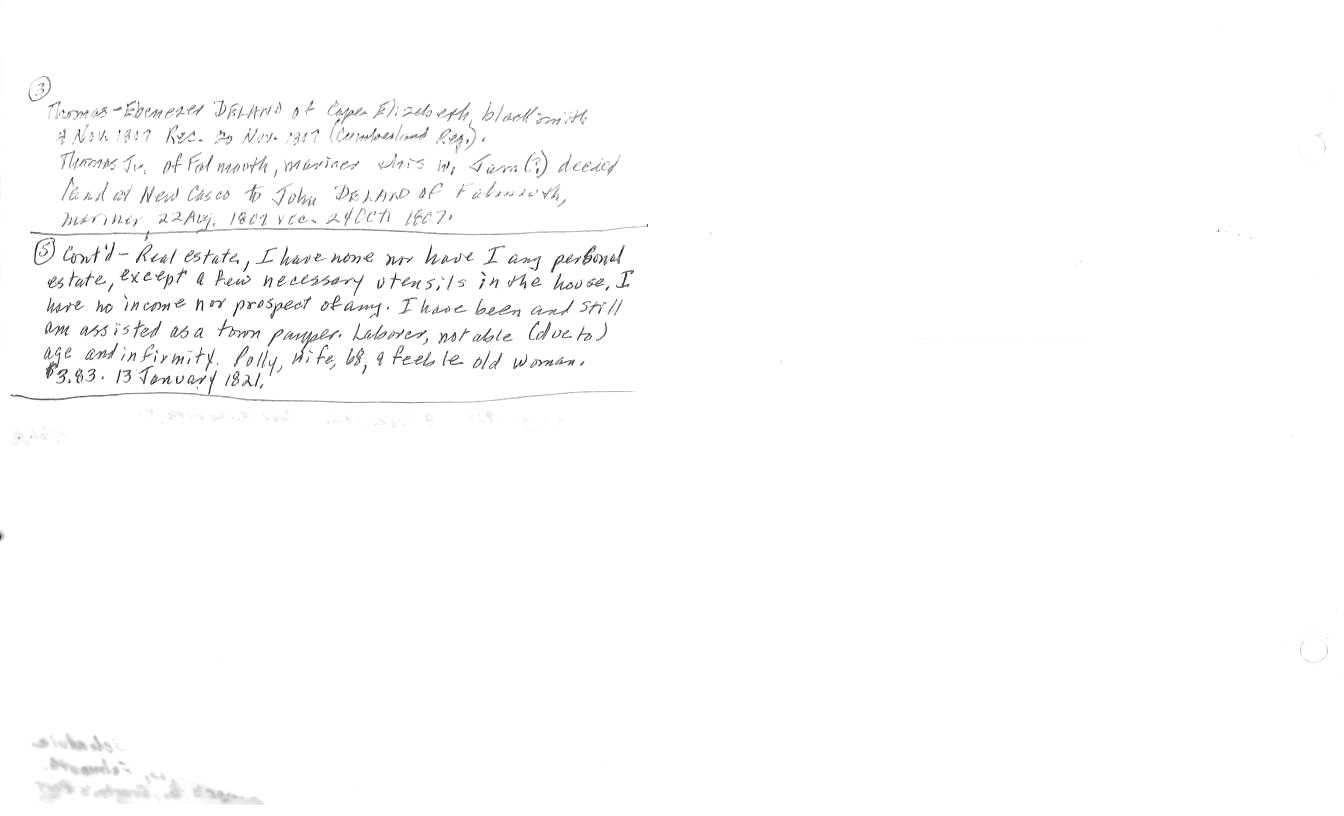 ③
Thomas - Ebenezer DELAND of Cape Elizabeth, blacksmith
Nov. 1807 Rec. 20 Nov. 1807 (Cumberland Reg.).
Thomas Jr. of Falmouth, mariner his w. (?) deeded
land at New Casco to John DELAND of Falmouth,
mariner, 22 Aug. 1807 rec. 24 Oct 1807.
⑤ Cont'd - Real estate, I have none nor have I any personal
estate, except a few necessary utensils in the house. I
have no income nor prospect of any. I have been and still
am assisted as a town pauper. Laborer, not able (due to)
age and infirmity. Polly, wife, 68, a feeble old woman.
$3.83. 13 January 1821.